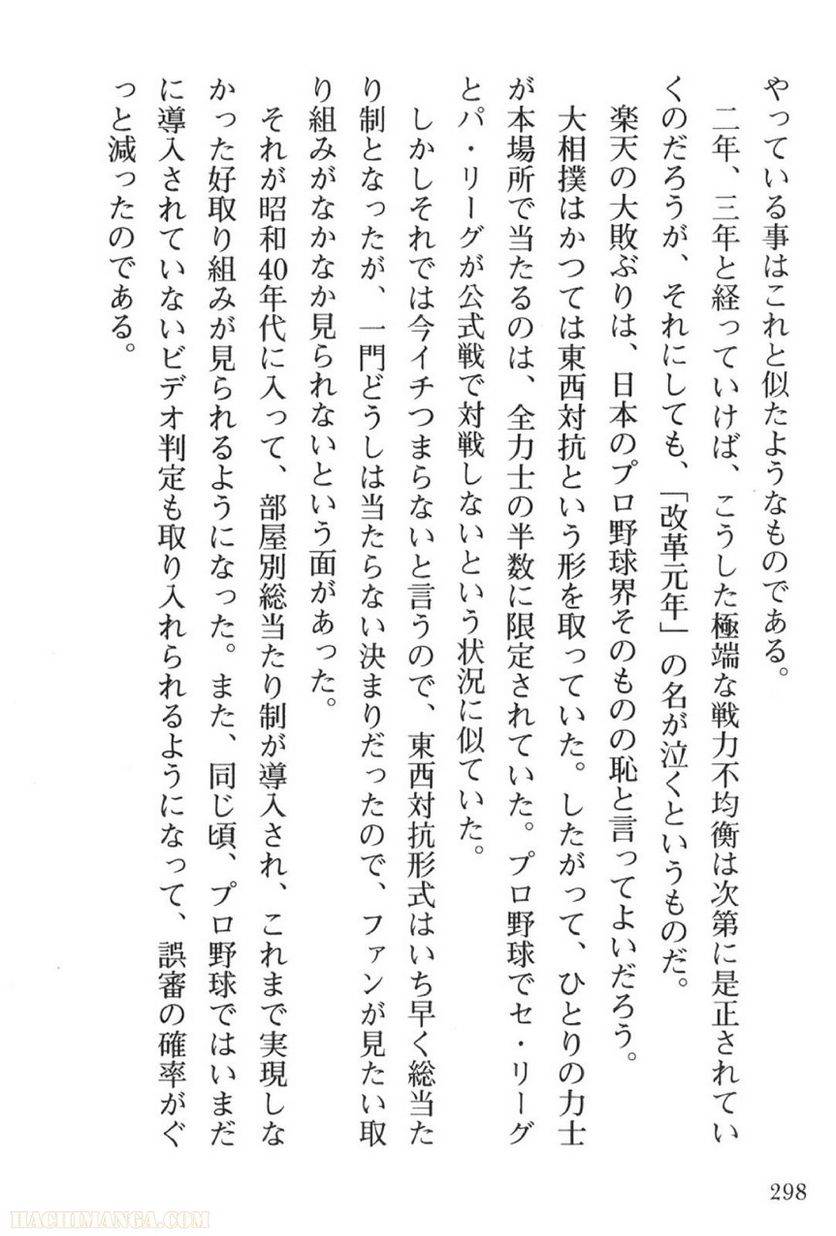 やっている事はこれと似たようなものである。
二年、三年と経っていけば、こうした極端な戦力不均衡は次第に是正されてい
くのだろうが、それにしても、「改革元年」の名が泣くというものだ。
楽天の大敗ぶりは、日本のプロ野球界そのものの恥と言ってよいだろう。
大相撲はかつては東西対抗という形を取っていた。したがって、ひとりの力士
が本場所で当たるのは、全力士の半数に限定されていた。プロ野球でセ・リーグ
とパ・リーグが公式戦で対戦しないという状況に似ていた。
しかしそれでは今イチつまらないと言うので、東西対抗形式はいち早く総当た
り制となったが、一門どうしは当たらない決まりだったので、ファンが見たい取
り組みがなかなか見られないという面があった。
それが昭和40年代に入って、部屋別総当たり制が導入され、これまで実現しな
かった好取り組みが見られるようになった。また、同じ頃、プロ野球ではいまだ
に導入されていないビデオ判定も取り入れられるようになって、誤審の確率がぐ
っと減ったのである。
298
HACHIMANGA.COM